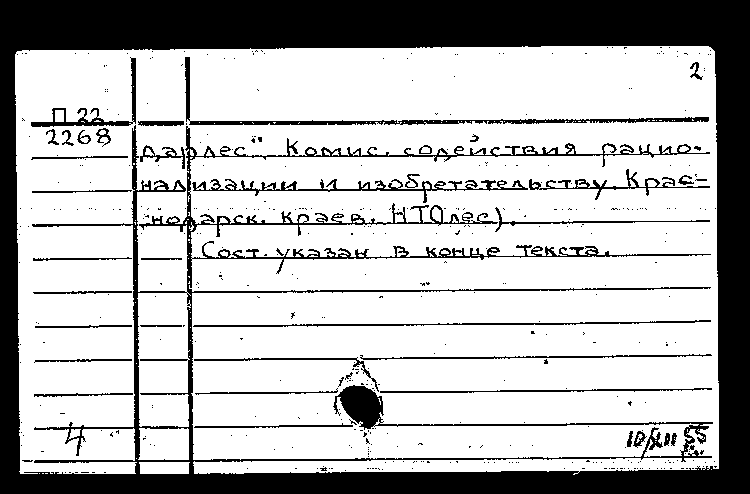 2
П 22
2268
дарлес". Комис. содействия рацио-
нализации и изобретательству. Крас-
нодарск. краев. НТОлес).
Сост. указан в конце текста.
4
55